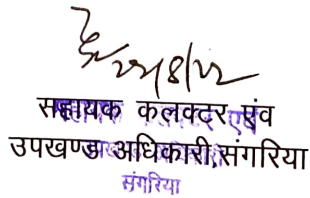 29/8/22
सहायक कलक्टर एंव
उपखण्ड अधिकारी,संगरिया
संगरिया